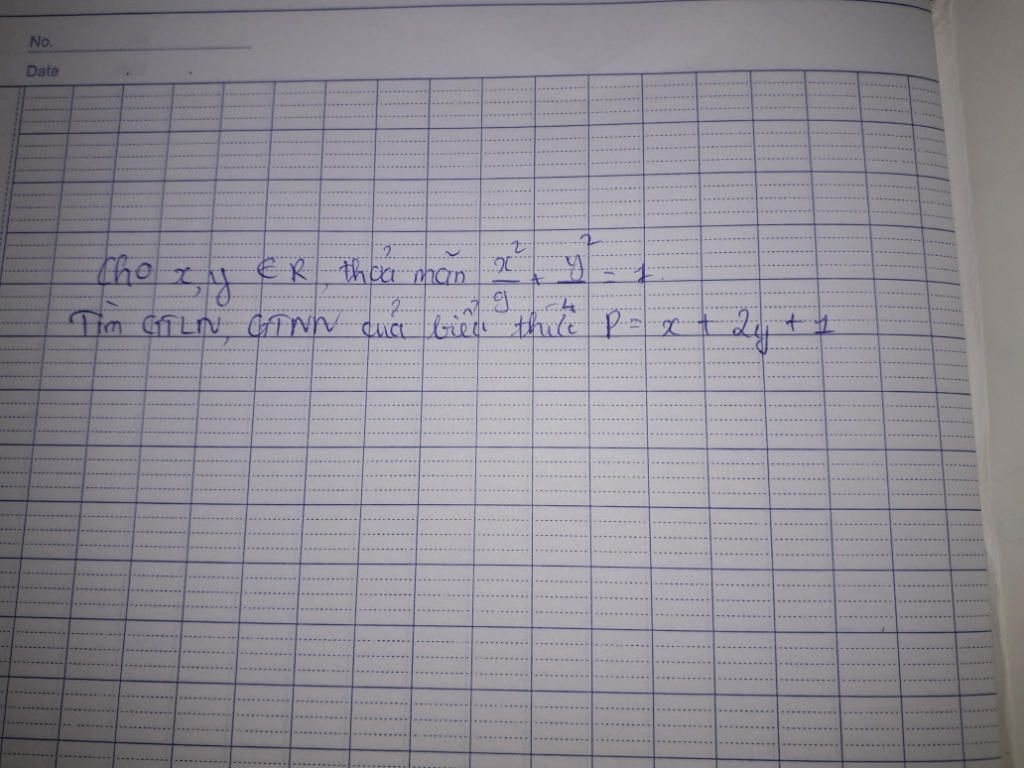 No.
Date
Cho x, y ∈ R, thoả mãn x²/9 + y²/4 = 1.
Tìm GTLN, GTNN của biểu thức P = x + 2y + 1